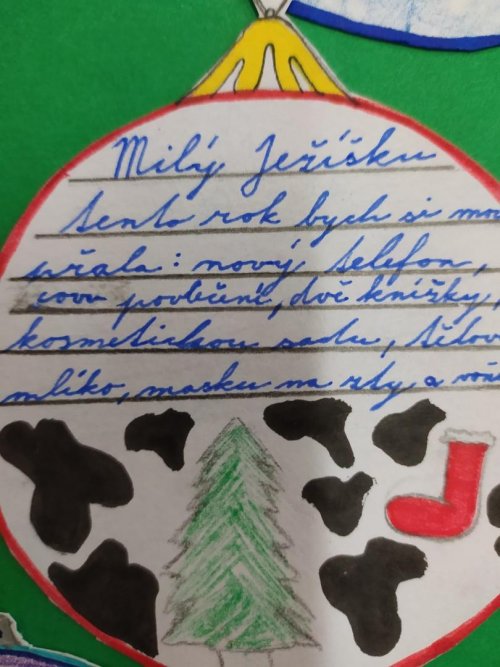 Milý Ježíšku
tento rok bych si mo
přala: nový telefon,
povlečení, dvě knížky,
kosmetickou sadu, tělov
mlíko, masku na rty, a vůn